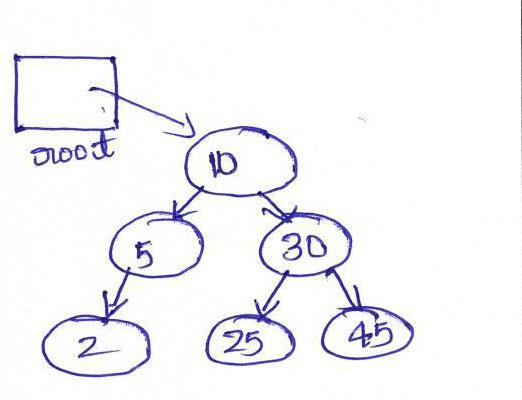 root
10
5 30
2 25 45